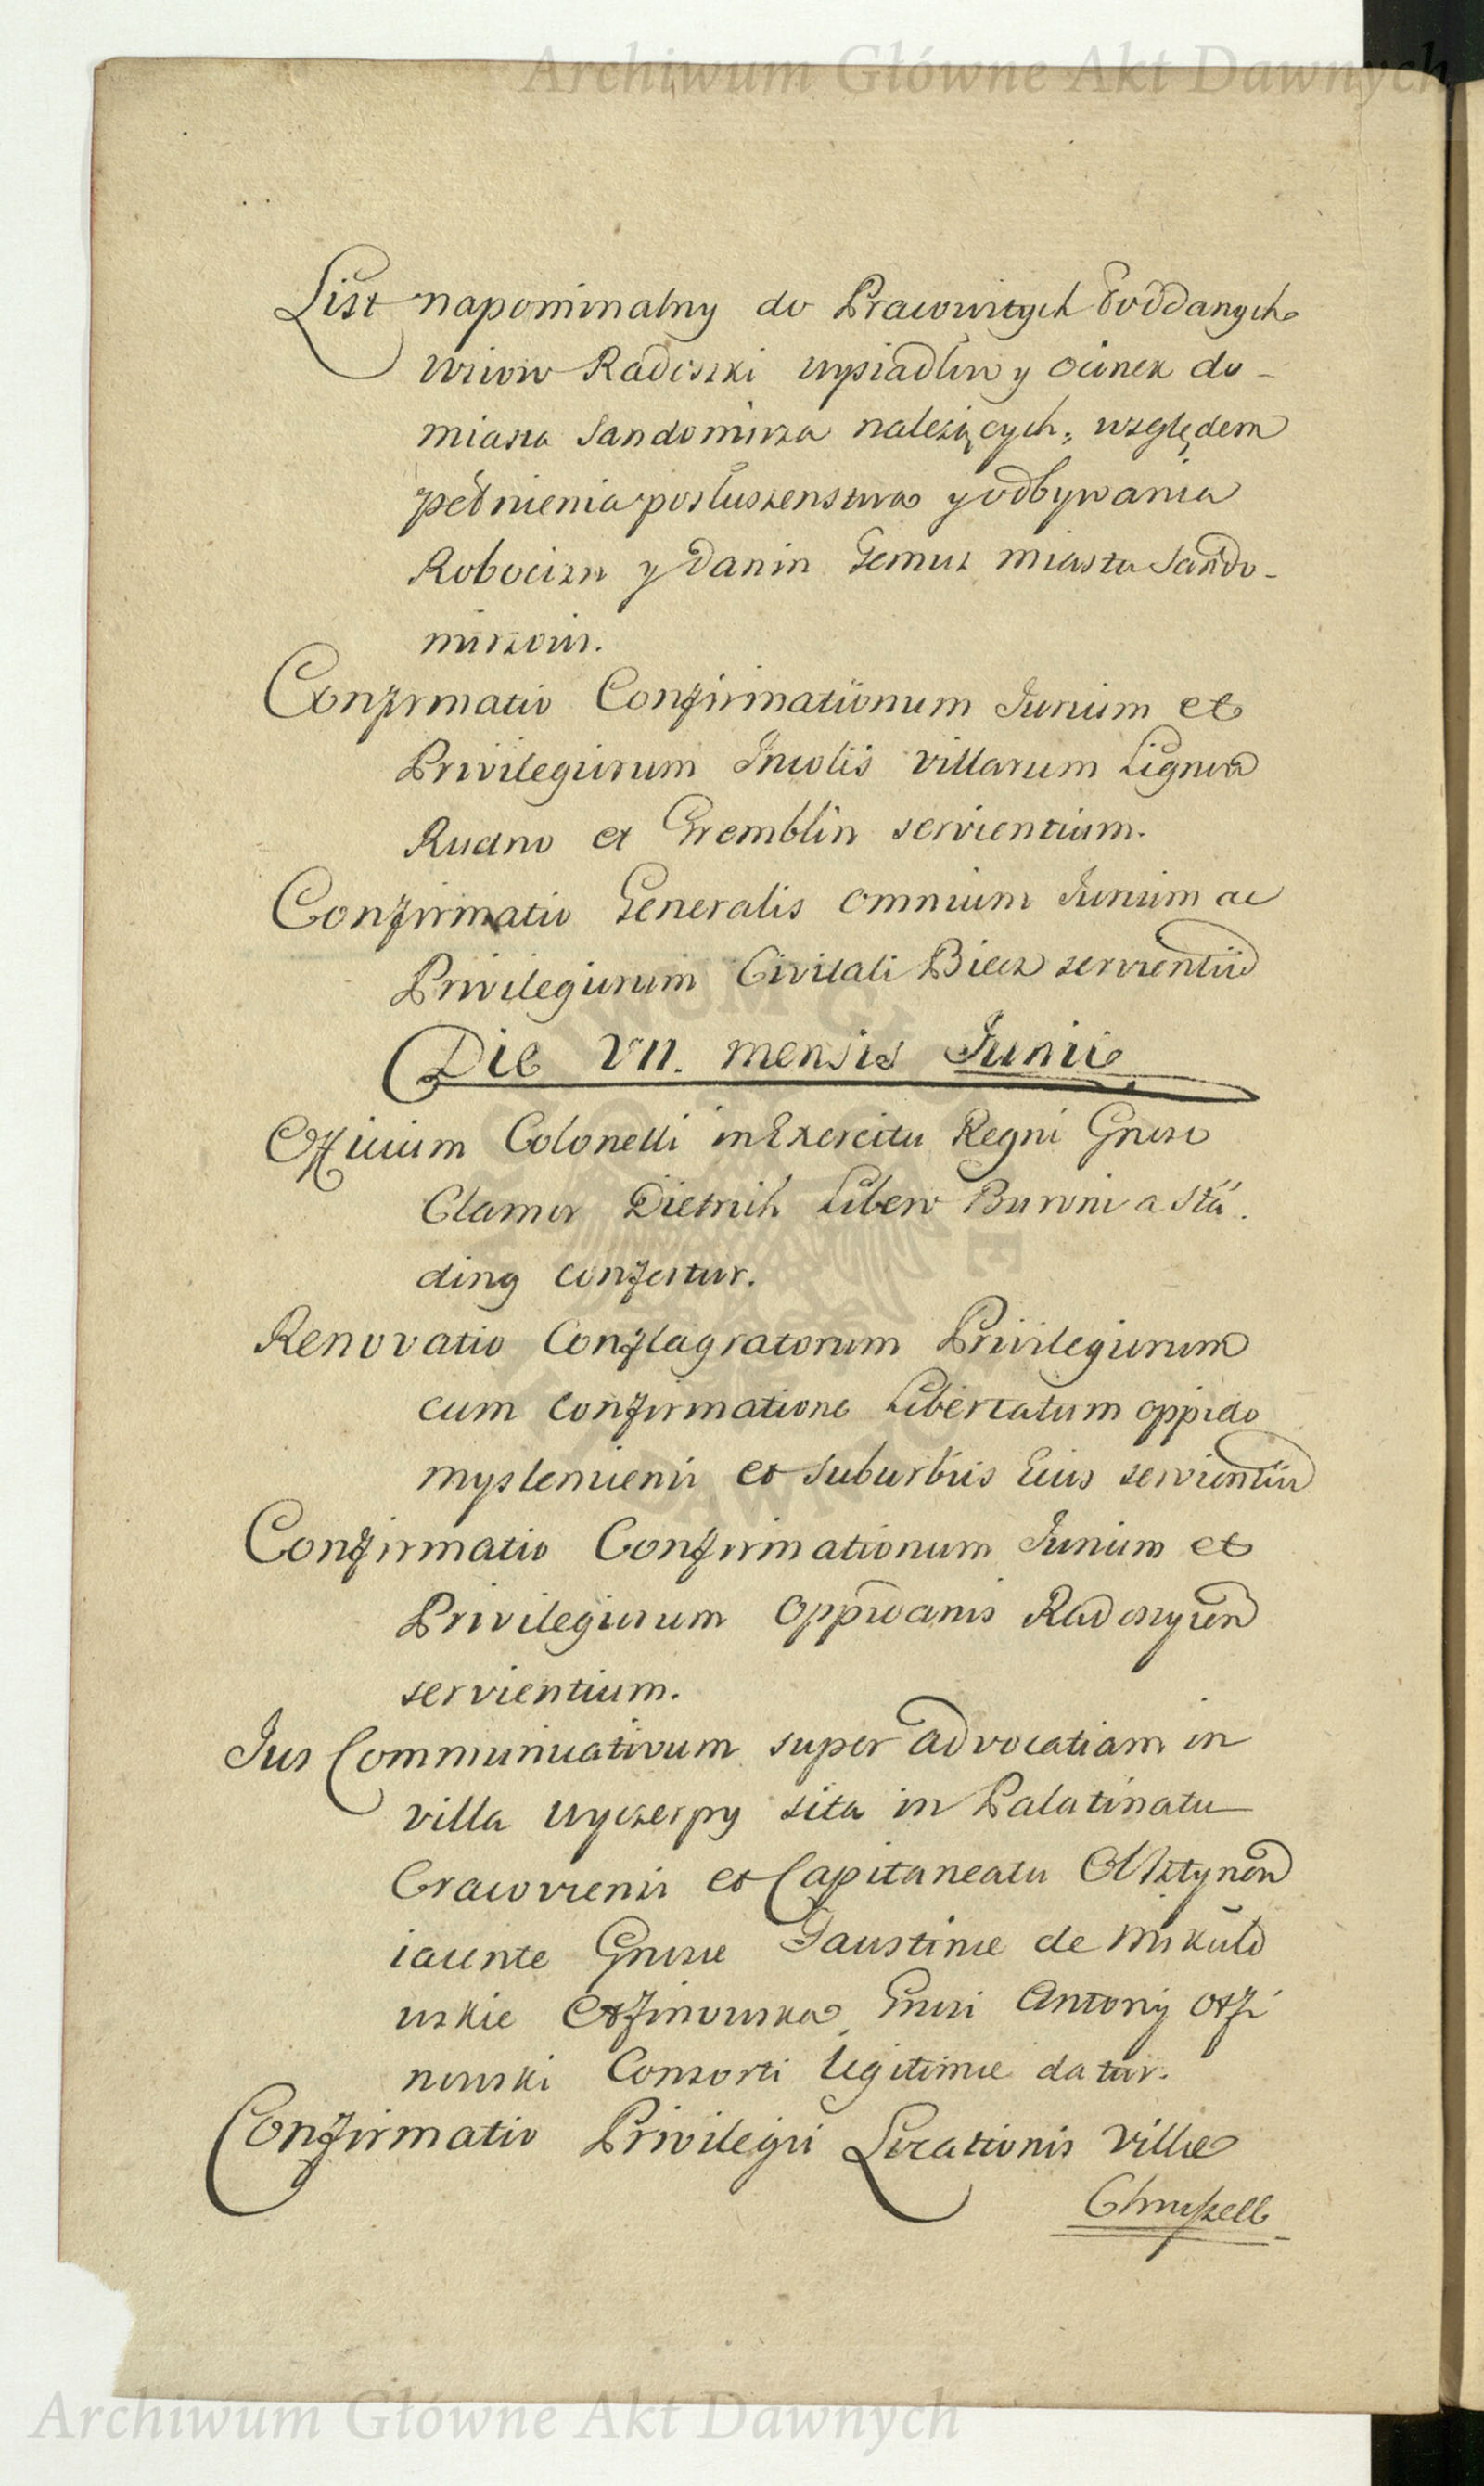 Archiwum Główne Akt Dawnych
List napominalny do Pracowitych Poddanych
wsiow Radoszki wysiadłow y Ocinek do-
miasta Sandomirza należących, względem
pełnienia posłuszenstwa y odbywania
Robocizn y Danin Temuz miastu Sando-
mirzowi.
Confirmatio Confirmationum Jurium et
Privilegiorum Incolis villarum Lignwa
Rudno et Gremblin servientium.
Confirmatio Generalis omnium Jurium ac
Privilegiorum Civitati Biecz servientiũ
Die VII. mensis Junii
Officium Colonelli in Exercitu Regni Gnoso
Clamor Dietrich Libero Baroni a Stä.
ding confertur.
Renovatio Conflagratorum Privilegiorum
cum confirmatione Libertatum oppido
myslenicensi et suburbiis Eius servientiũ
Confirmatio Confirmationum Jurium et
Privilegiorum Oppidanis Radoszycen
servientium.
Jus Communicativum super advocatiam in
villa Wyczerpy sita in Palatinatu
Cracoviensi et Capitaneatu Olsztynen
iacente Gnosae Faustinae de Mikuło
wskie Otfinowska, Gnosi Antonij Otfi
nowski Consorti legitimae datur.
Confirmatio Privilegii Locationis Villae
Archiwum Główne Akt Dawnych